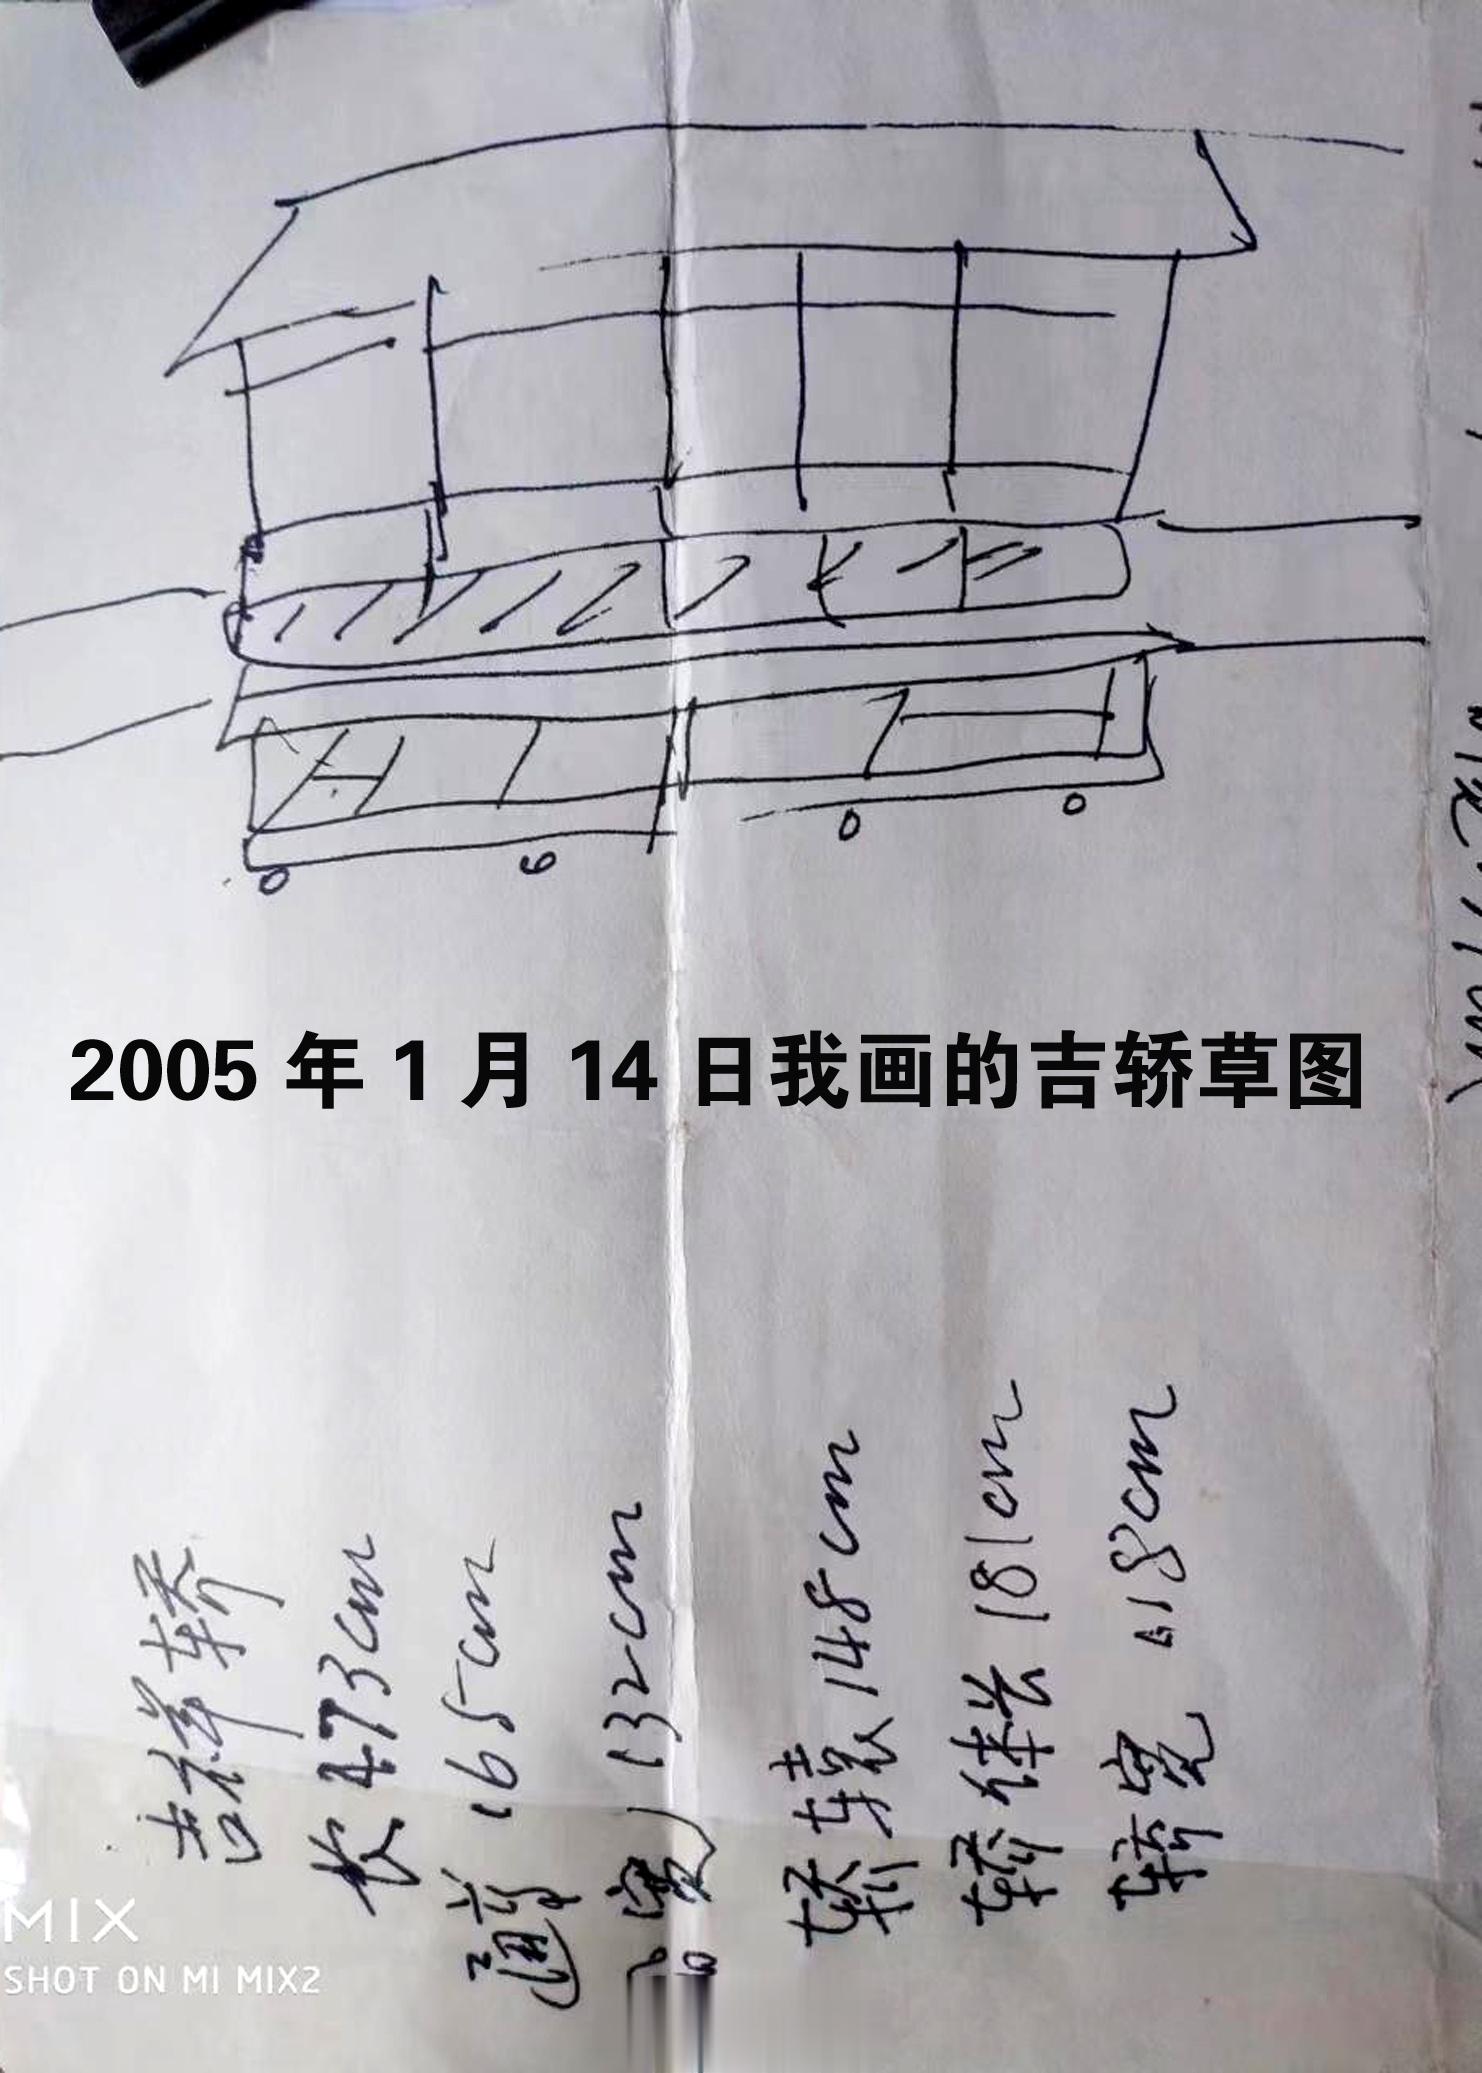 2005 年 1 月 14 日我画的吉轿草图
吉祥轿
长 473cm
通高 165cm
宽 132cm
轿辕 148cm
轿体长 181cm
轿宽 118cm
MIX
SHOT ON MI MIX2